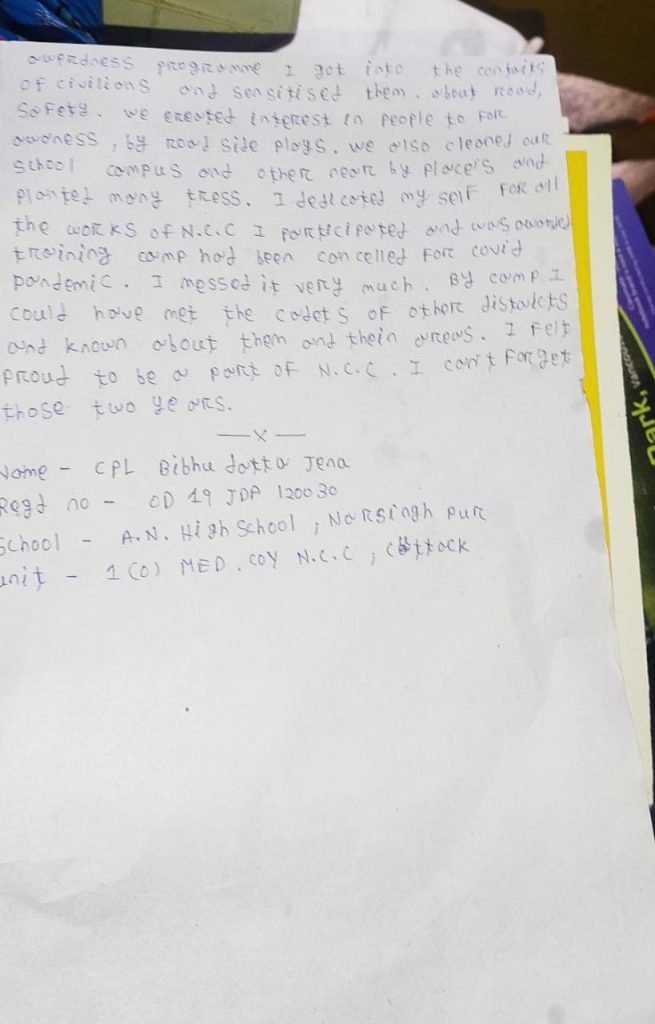 awerdness programme I got into the contaits
of civilions and sensitised them. about road,
Safety. we ereated interest in people to for
awaness, by road side ploys. we also cleaned our
school campus and other near by place's and
planted many tress. I dedicated my self for all
the works of N.C.C I participated and was awarded
training camp had been cancelled for covid
pandemic. I messed it very much. By camp I
could have met the cadets of other distvicts
and known about them and thein arews. I felt
proud to be a part of N.C.C. I can't forget
those two years.
—x—
Name - CPL Bibhu datta Jena
Regd no - OD 19 JDA 120030
School - A.N. High School, Narsingh pur
unit - 1 (O) MED. COY N.C.C, Cuttack
park, vancou